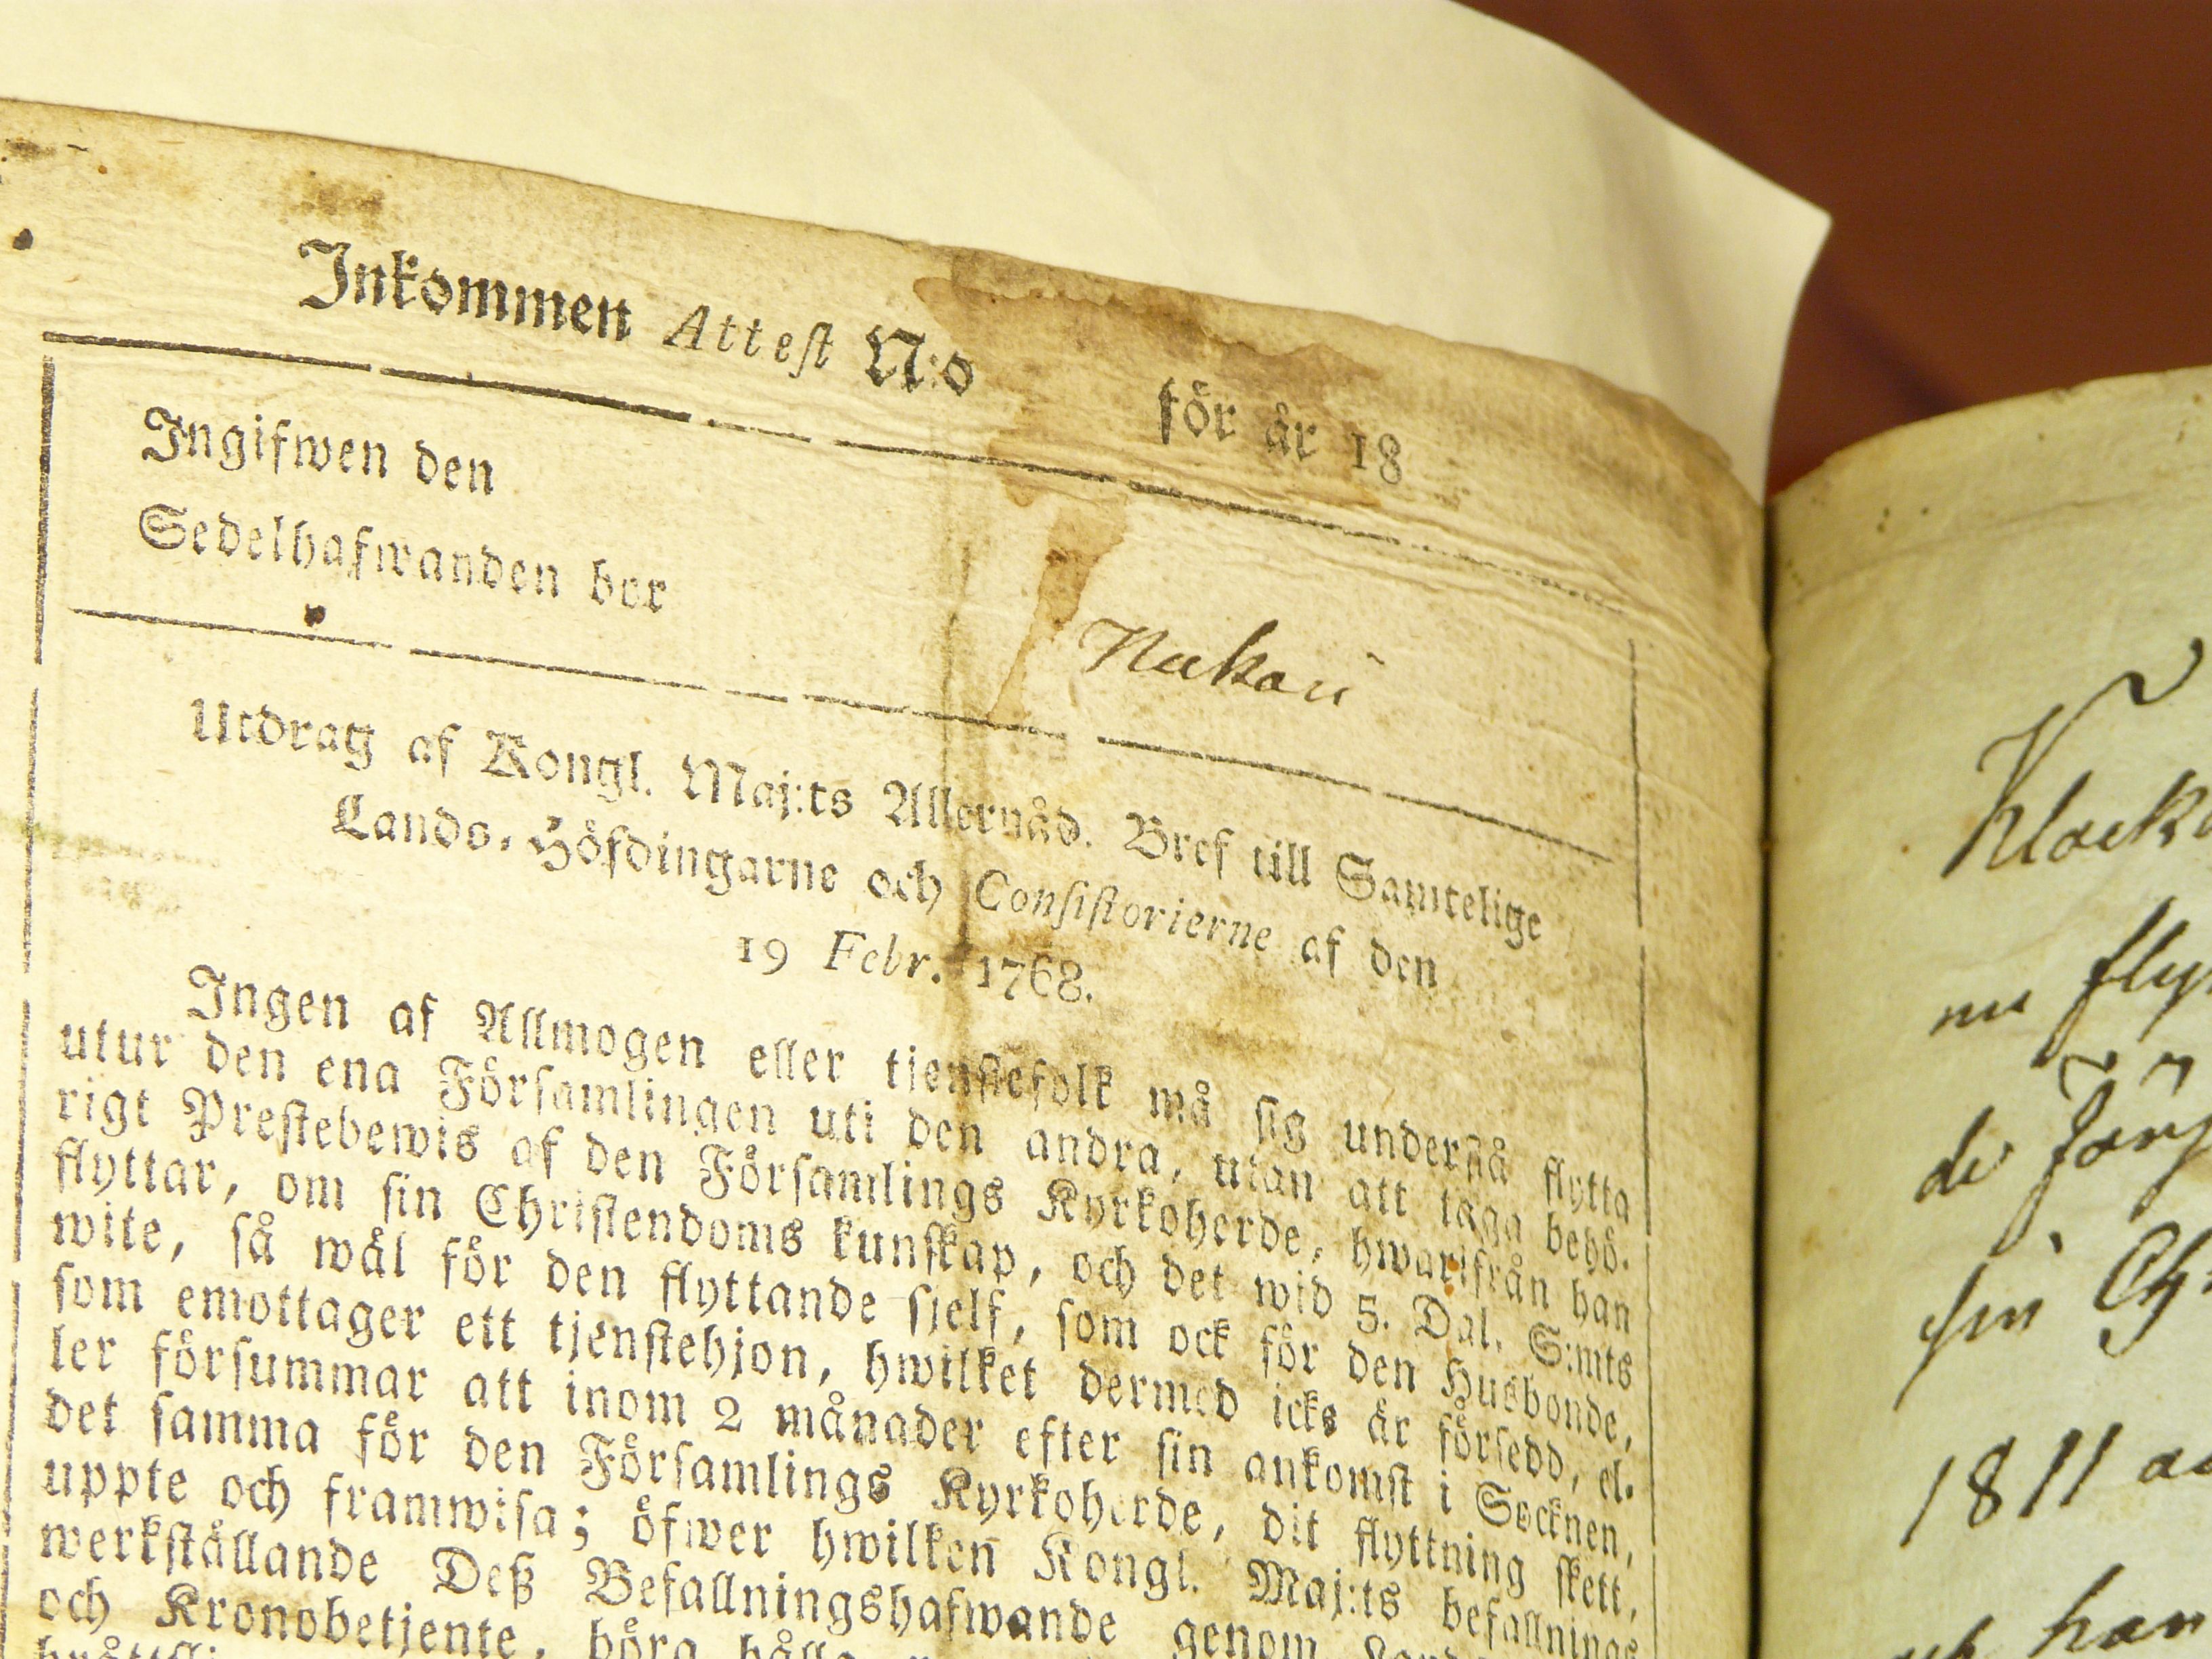 Inkommen Attest N:o för år 18
Ingifwen den
Sedelhafwanden bor
Utdrag af Kongl. Maj:ts Allernåd. Bref till Samtelige
Lands-Höfdingarne och Consistorierne af den
19 Febr. 1768.
Ingen af Allmogen eller tjenstefolk må sig understå flytta
utur den ena Församlingen uti den andra, utan att taga behö-
rigt Prestebewis af den Församlings Kyrkoherde, hwarifrån han
flyttar, om sin Christendoms kunskap, och det wid 5. Dal. S:mts
wite, så wäl för den flyttande sjelf, som ock för den Husbonde,
som emottager ett tjenstehjon, hwilket dermed icke är försedd, el-
ler försummar att inom 2 månader efter sin ankomst i Socknen,
det samma för den Församlings Kyrkoherde, dit flyttning skett,
uppte och framwisa; öfwer hwilken Kongl. Maj:ts befallnings
werkställande Deß Befallningshafwande genom
och Kronobetjente, böra hålla
Klock
nu
de
sin
1811
han